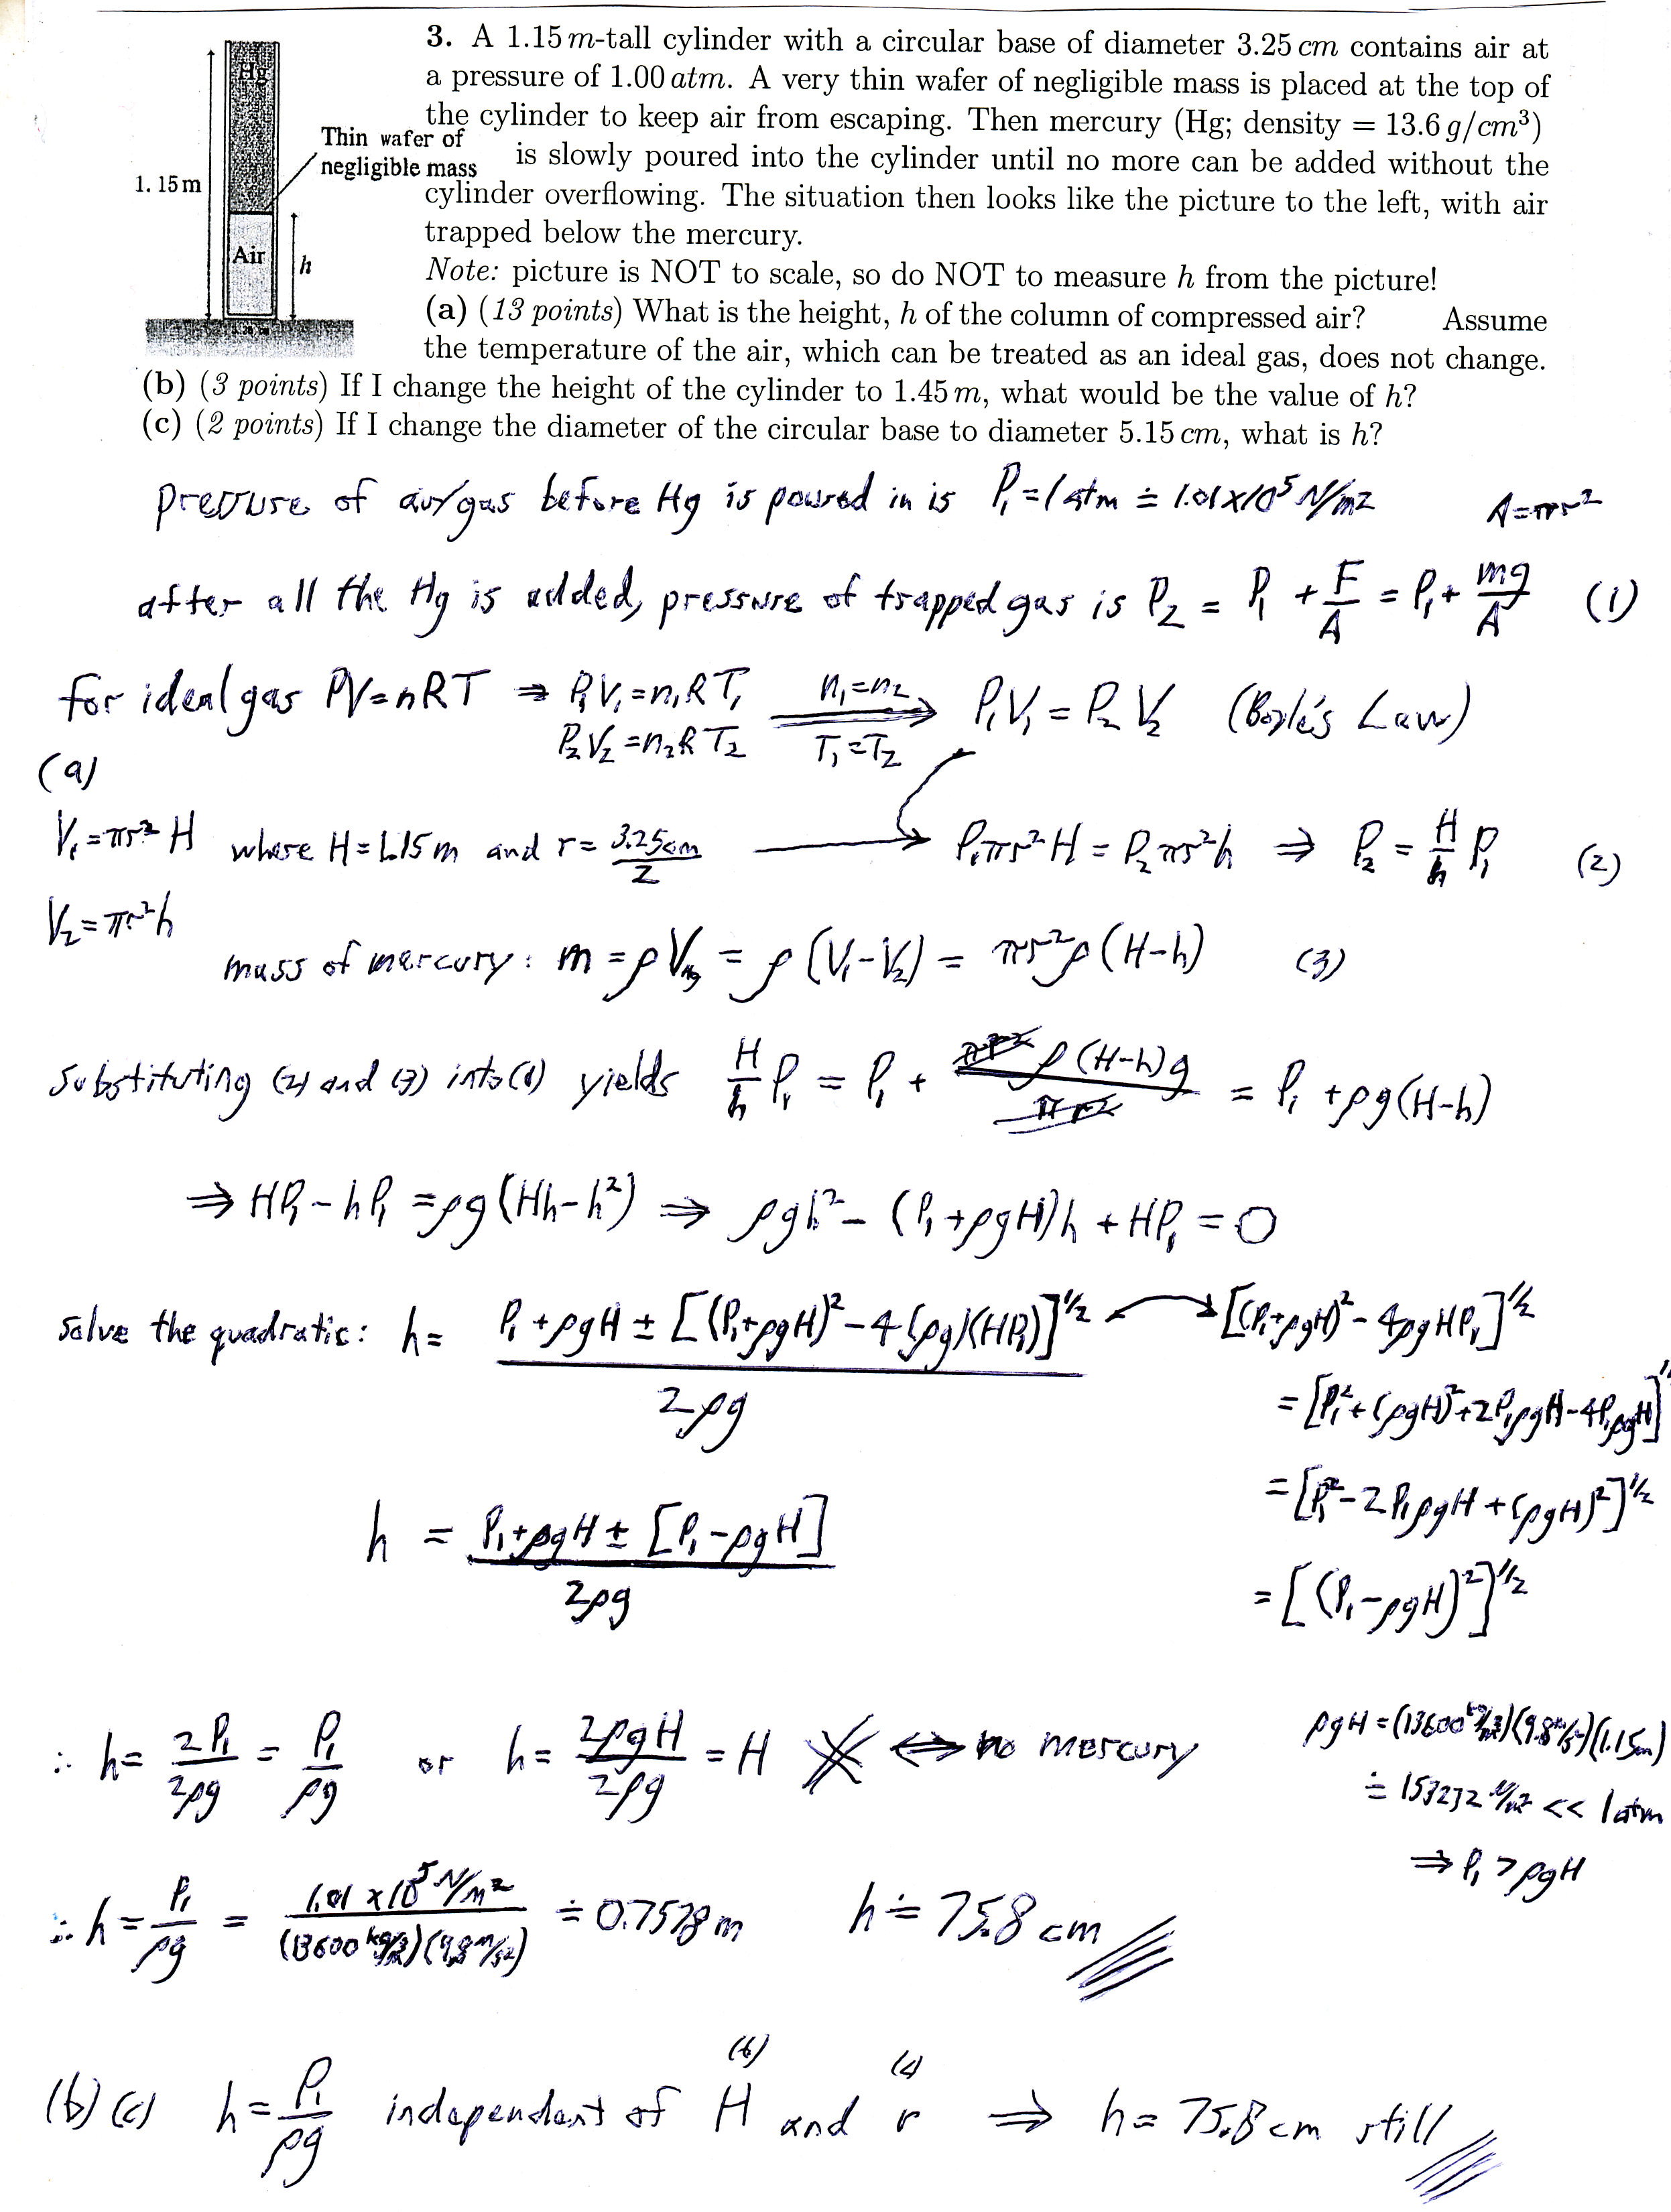 Hg
Thin wafer of
negligible mass
1.15 m
Air
h
3. A 1.15 m-tall cylinder with a circular base of diameter 3.25 cm contains air at
a pressure of 1.00 atm. A very thin wafer of negligible mass is placed at the top of
the cylinder to keep air from escaping. Then mercury (Hg; density = 13.6 g/cm³)
is slowly poured into the cylinder until no more can be added without the
cylinder overflowing. The situation then looks like the picture to the left, with air
trapped below the mercury.
Note: picture is NOT to scale, so do NOT to measure h from the picture!
(a) (13 points) What is the height, h of the column of compressed air? Assume
the temperature of the air, which can be treated as an ideal gas, does not change.
(b) (3 points) If I change the height of the cylinder to 1.45 m, what would be the value of h?
(c) (2 points) If I change the diameter of the circular base to diameter 5.15 cm, what is h?
pressure of air/gas before Hg is poured in is P₁ = 1 atm ≐ 1.01x10⁵ N/m² A = πr²
after all the Hg is added, pressure of trapped gas is P₂ = P₁ + F/A = P₁ + mg/A (1)
for ideal gas PV = nRT ⇒ P₁V₁ = n₁RT₁ n₁=n₂ P₁V₁ = P₂V₂ (Boyle's Law)
P₂V₂ = n₂RT₂ T₁=T₂
(a)
V₁ = πr²H where H = 1.15 m and r = 3.25cm/2 → P₁πr²H = P₂πr²h ⇒ P₂ = H/h P₁ (2)
V₂ = πr²h
mass of mercury: m = ρV_Hg = ρ(V₁-V₂) = πr²ρ(H-h) (3)
substituting (2) and (3) into (1) yields H/h P₁ = P₁ + πr²ρ(H-h)g/πr² = P₁ + ρg(H-h)
⇒ HP₁ - hP₁ = ρg(Hh-h²) ⇒ ρgh² - (P₁+ρgH)h + HP₁ = 0
solve the quadratic: h = P₁ + ρgH ± [(P₁+ρgH)² - 4(ρg)(HP₁)]^½ / 2ρg
[(P₁+ρgH)² - 4ρgHP₁]^½
= [P₁² + (ρgH)² + 2P₁ρgH - 4P₁ρgH]^½
= [P₁² - 2P₁ρgH + (ρgH)²]^½
= [(P₁-ρgH)²]^½
h = P₁+ρgH ± [P₁-ρgH] / 2ρg
∴ h = 2P₁/2ρg = P₁/ρg or h = 2ρgH/2ρg = H ⇔ no mercury
ρgH = (13600 kg/m³)(9.8 m/s²)(1.15m)
≐ 153272 N/m² << 1 atm
⇒ P₁ > ρgH
∴ h = P₁/ρg = 1.01 x 10⁵ N/m² / (13600 kg/m³)(9.8 m/s²) ≐ 0.7578 m h ≐ 75.8 cm
(b) (c)
(b) (c) h = P₁/ρg independent of H and r ⇒ h = 75.8 cm still